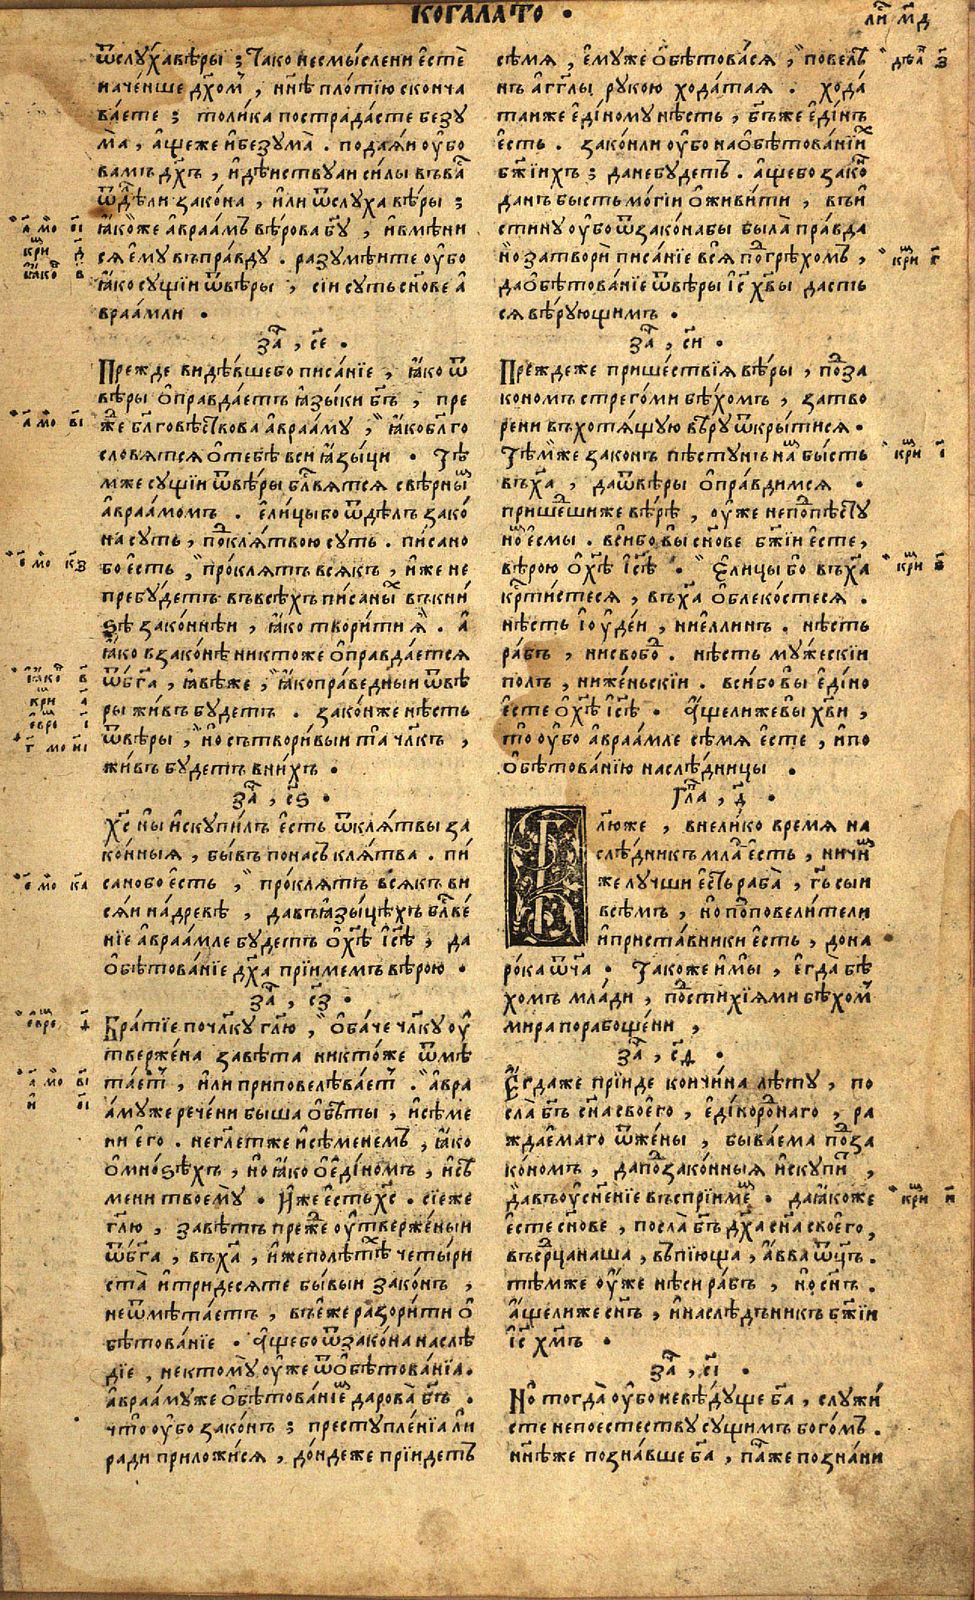 КОГАЛАТО ·
ли҃ м҃д
ѿслꙋ́хавѣры ; Та́ко несмы́слени є҆стѐ
наче́нше дх҃ом , нн҃ѣ пло́тїю сконча
ва́ете ; толи́ка пострада́сте безꙋ
ма̀ , а҆́щеже и҆безꙋма̀ . подаѧ́и ᲂу҆́бо
ва́мъ дх҃ъ , и҆дѣ́иствꙋаи си́лы въва́
ѿдѣ́ли зако́на , и҆́ли ѿслꙋ́ха вѣ́ры ;
ꙗ҆́коже а҆враа́мъ вѣ́рова бг҃ꙋ , и҆вмѣни́
сѧ є҆мꙋ̀ въпра́вдꙋ . разꙋмѣ́ите ᲂу҆́бо
ꙗ҆́ко сꙋ́щїи ѿвѣ́ры , сїи сꙋ́ть сн҃ове а҆
враа́мли .
за҃ , с҃е .
Пре́жде видѣ́вшебо писа́нїе , ꙗ҆́ко ѿ
вѣ́ры ѡ҆правда́етъ ꙗ҆зы́ки бг҃ъ , пре
же бл҃говѣ́ствова а҆враа́мꙋ , ꙗ҆́кобл҃го
словѧ́тсѧ ѡ҆тебѣ̀ вси ꙗ҆зы́ци . Тѣ́
мже сꙋ́щїи ѿвѣ́ры бл҃вѧ́тсѧ свѣ́рны
а҆враа́момъ . є҆ли́цыбо ѿдѣ́лъ зако́
на сꙋ́ть , поклѧ́твою сꙋ́ть . писано
бо є҆́сть , про́клѧтъ всѧ́къ , и҆́же не
пребꙋ́детъ въвсѣ́хъ пи́саны въкни́
ѕѣ зако́ннѣи , ꙗ҆́ко твори́ти ѧ҆̀ . а҆
ꙗ҆́ко взако́нѣ никто́же ѡ҆правда́етсѧ
ѿбг҃а , ꙗ҆́вѣже , ꙗ҆́коправедныи ѿвѣ
ры жи́въ бꙋ́детъ . зако́нже нѣ́сть
ѿвѣ́ры , но сътвори́выи та чл҃къ ,
жи́въ бꙋ́детъ вни́хъ .
за҃ , с҃ѕ .
Хс҃ ны и҆скꙋпи́лъ є҆́сть ѿклѧ́твы за
ко́нныѧ , бы́въ пона́съ клѧ́тва . пи́
санобо є҆́сть , про́клѧтъ всѧ́къ ви
сѧ́и на́древѣ , давъꙗ҆зы́цѣхъ бл҃ве́
нїе а҆враа́мле бꙋ́детъ ѡ҆хѣ҃ і҆сѣ҃ , да
ѡ҆бѣтова́нїе дх҃а прїи́мемъ вѣ́рою .
за҃ , с҃з .
Бра́тїе почл҃кꙋ гл҃ю , ѡ҆ба́че чл҃кꙋ ᲂу҆
тверже́на завѣ́та никто́же ѿмѣ
та́ет , и҆́ли приповелѣва́ет . а҆вра
а́мꙋже рече́ни бы́ша ѡ҆бѣ́ты , и҆сѣ́ме
ни є҆го̀ . негл҃етже и҆сѣ́менемъ , ꙗ҆́ко
ѡ҆мно́ѕѣхъ , но ꙗ҆́ко ѡ҆є҆ди́номъ , и҆сѣ
мени твоемꙋ̀ . И҆́же є҆́сть хс҃ . сїеже
гл҃ю , завѣ́тъ пре́же ᲂу҆тверже́ныи
ѿбг҃а , въха҃ , и҆́жеполѣ́тѣ четы́ри
ста̀ и҆тридесѧте бы́выи зако́нъ ,
неѿмѣта́етъ , въє҆́же разори́ти ѡ҆
бѣтова́нїе . А҆́щебо ѿзако́на наслѣ́
дїе , нектомꙋ̀ ᲂу҆́же ѿѡ҆бѣтова́нїѧ .
а҆враа́мꙋже ѡ҆бѣтова́нїе дарова̀ бг҃ъ .
что̀ ᲂу҆́бо зако́нъ ; престꙋпле́нїѧ ли
ради приложи́сѧ , до́ндеже прїи́детъ
сѣ́мѧ , є҆мꙋ́же ѡ҆бѣтова́сѧ , повелѣ
нъ а҆́гг҃лы рꙋко́ю хода́таѧ . хода́
таиже є҆ди́номꙋ нѣ́сть , бг҃ъже є҆ди́нъ
є҆́сть . зако́нли ᲂу҆́бо наѡ҆бѣтова́нїи
бж҃їихъ ; данебꙋ́детъ . а҆́щебо зако́
данъ бы́сть моги́и ѡ҆живи́ти , въи́
стинꙋ ᲂу҆́бо ѿзако́набы была̀ пра́вда
но затворѝ писа́нїе всѧ̀ погрѣхо́мъ ,
даѡ҆бѣтова́нїе ѿвѣ́ры і҆с҃ хв҃ы да́сть
сѧ вѣ́рꙋющимъ .
за҃ , с҃и .
Пре́ждеже прише́ствїѧ вѣ́ры , по́за
ко́номъ стрего́ми бѣ́хомъ , затво
рени въхотѧ́щꙋю вѣ́рꙋ ѿкры́тисѧ .
Тѣ́мже зако́нъ пѣ́стꙋнъ на бы́сть
въха҃ , даѿвѣ́ры ѡ҆пра́вдимсѧ .
прише́шиже вѣ́рѣ , ᲂу҆́же непо́пѣстꙋ
но є҆смы . вси́бо вы сн҃ове бж҃їи є҆сте ,
вѣ́рою ѡ҆хѣ҃ і҆сѣ҃ . Є҆ли́цы бо въха҃
крⷭ҇ти́стесѧ , въха҃ ѡ҆блеко́стесѧ .
нѣ́сть і҆ᲂу҆де́и , ниє҆́ллинъ . нѣ́сть
ра́бъ , нисвобо . нѣ́сть мꙋ́жескїи
полъ , ниже́ньскїи . вси́бо вы̀ є҆ди́но
є҆сте ѡ҆хѣ҃ і҆сѣ҃ . А҆́щелижевы̀ хв҃и ,
то ᲂу҆́бо а҆враа́мле сѣ́мѧ є҆сте , и҆по
ѡ҆бѣтова́нїю наслѣ́дницы .
Гла҃ , д҃ .
Глю́же , внели́ко вре́мѧ на
слѣ́дникъ мла́ є҆́сть , ничи́
же лꙋ́чши є҆́сть раба̀ , гь҃ сыи
всѣ́мъ , но поповели́тели
и҆приста́вники є҆́сть , дона
ро́ка ѿч҃а . Та́коже и҆мы̀ , є҆гда̀ бѣ́
хомъ мла́ди , постихїѧ́ми бѣ́хом
ми́ра порабоще́ни ,
за҃ , с҃ѳ .
Є҆гда́же прїи́де кончи́на лѣ́тꙋ , по
сла̀ бг҃ъ сн҃а своего̀ , є҆дїноро́наго , ра
жда́емаго ѿжены̀ , быва́ема поза
ко́номъ , дапозако́нныѧ и҆скꙋпи ,
давъᲂу҆сн҃е́нїе въспрїи́ме . даꙗ҆́коже
є҆сте сн҃ове , посла̀ бг҃ъ дх҃а сн҃а своего̀ ,
въсрⷣцана́ша , въпїю́ща , а҆́вва ѿч҃ъ .
тѣ́мже ᲂу҆́же нѣ́си ра́бъ , но сн҃ъ .
а҆́щелиже сн҃ъ , и҆наслѣ́дьникъ бж҃їи
і҆с҃ хм҃ъ .
за҃ , с҃і .
Но́ тогда̀ ᲂу҆́бо невѣ́дꙋще ба҃ , слꙋжи́
сте непоесте́ствꙋ сꙋ́щимъ бого́мъ .
нн҃ѣже позна́вше ба҃ , па́же позна́ни